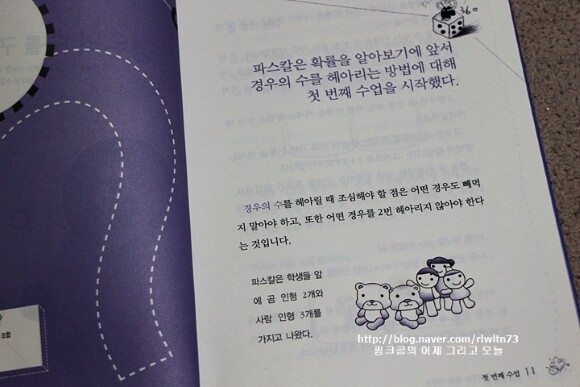 360
파스칼은 확률을 알아보기에 앞서
경우의 수를 헤아리는 방법에 대해
첫 번째 수업을 시작했다.
경우의 수를 헤아릴 때 조심해야 할 점은 어떤 경우도 빼먹
지 말아야 하고, 또한 어떤 경우를 2번 헤아리지 않아야 한다
는 것입니다.
파스칼은 학생들 앞
에 곰 인형 2개와
사람 인형 3개를
가지고 나왔다.
http://blog.naver.com/rlwltn73
핑크공의 어제 그리고 오늘
첫 번째 수업 11
조합